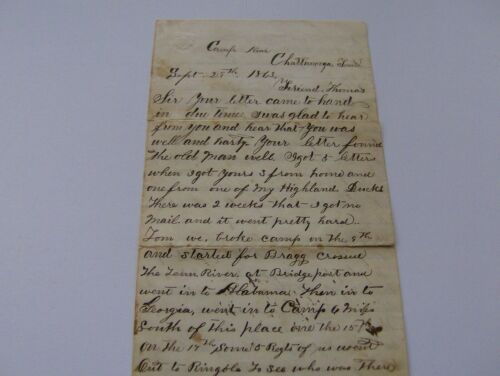 Camp Near
Chattanooga Tenn
Sept. 25th 1863
Friend Thomas
Sir Your letter came to hand
in due time I was glad to hear
from You and hear that You was
well and harty Your letter found
the old Man well I got 5 letters
when I got Yours 3 from home and
one from one of My Highland Ducks
There was 2 weeks that I got no
Mail and it went pretty hard.
Tom we broke camp on the 8th
and started for Bragg crossed
The Tenn River at Bridgeport and
went in to Alabama Then in to
Georgia, went in to Camp 6 Miles
South of this place on the 15th
On the 17th Some 5 Regts of us went
Out to Ringold To see who was There